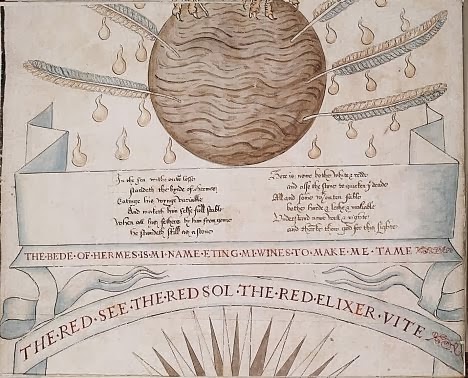 In the sea lese
standeth the byrde of Hermes
Eating his wynges variable
And maketh him selfe full stable
When all his fethers be from gone
He standeth still as a stone
Here is nowe bothe white & redde
and also the stone to quicken deade
All and some fable
bothe harde & malliable
Understand nowe well & righte
and thanke thou god for this sighte
THE·BEDE·OF·HERMES·IS·MI·NAME·ETING·MI·WINES·TO·MAKE·ME·TAME
THE·RED·SEE·THE·RED·SOL·THE·RED·ELIXER·VITE